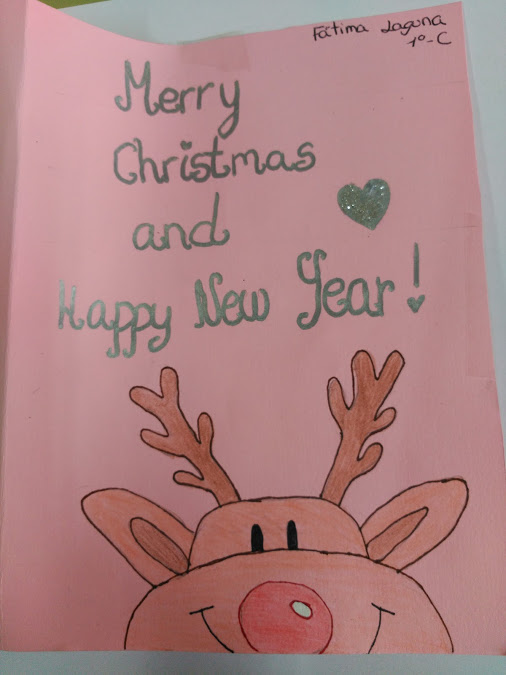 Fátima Laguna
1º-C
Merry
Christmas
and
Happy New Year!